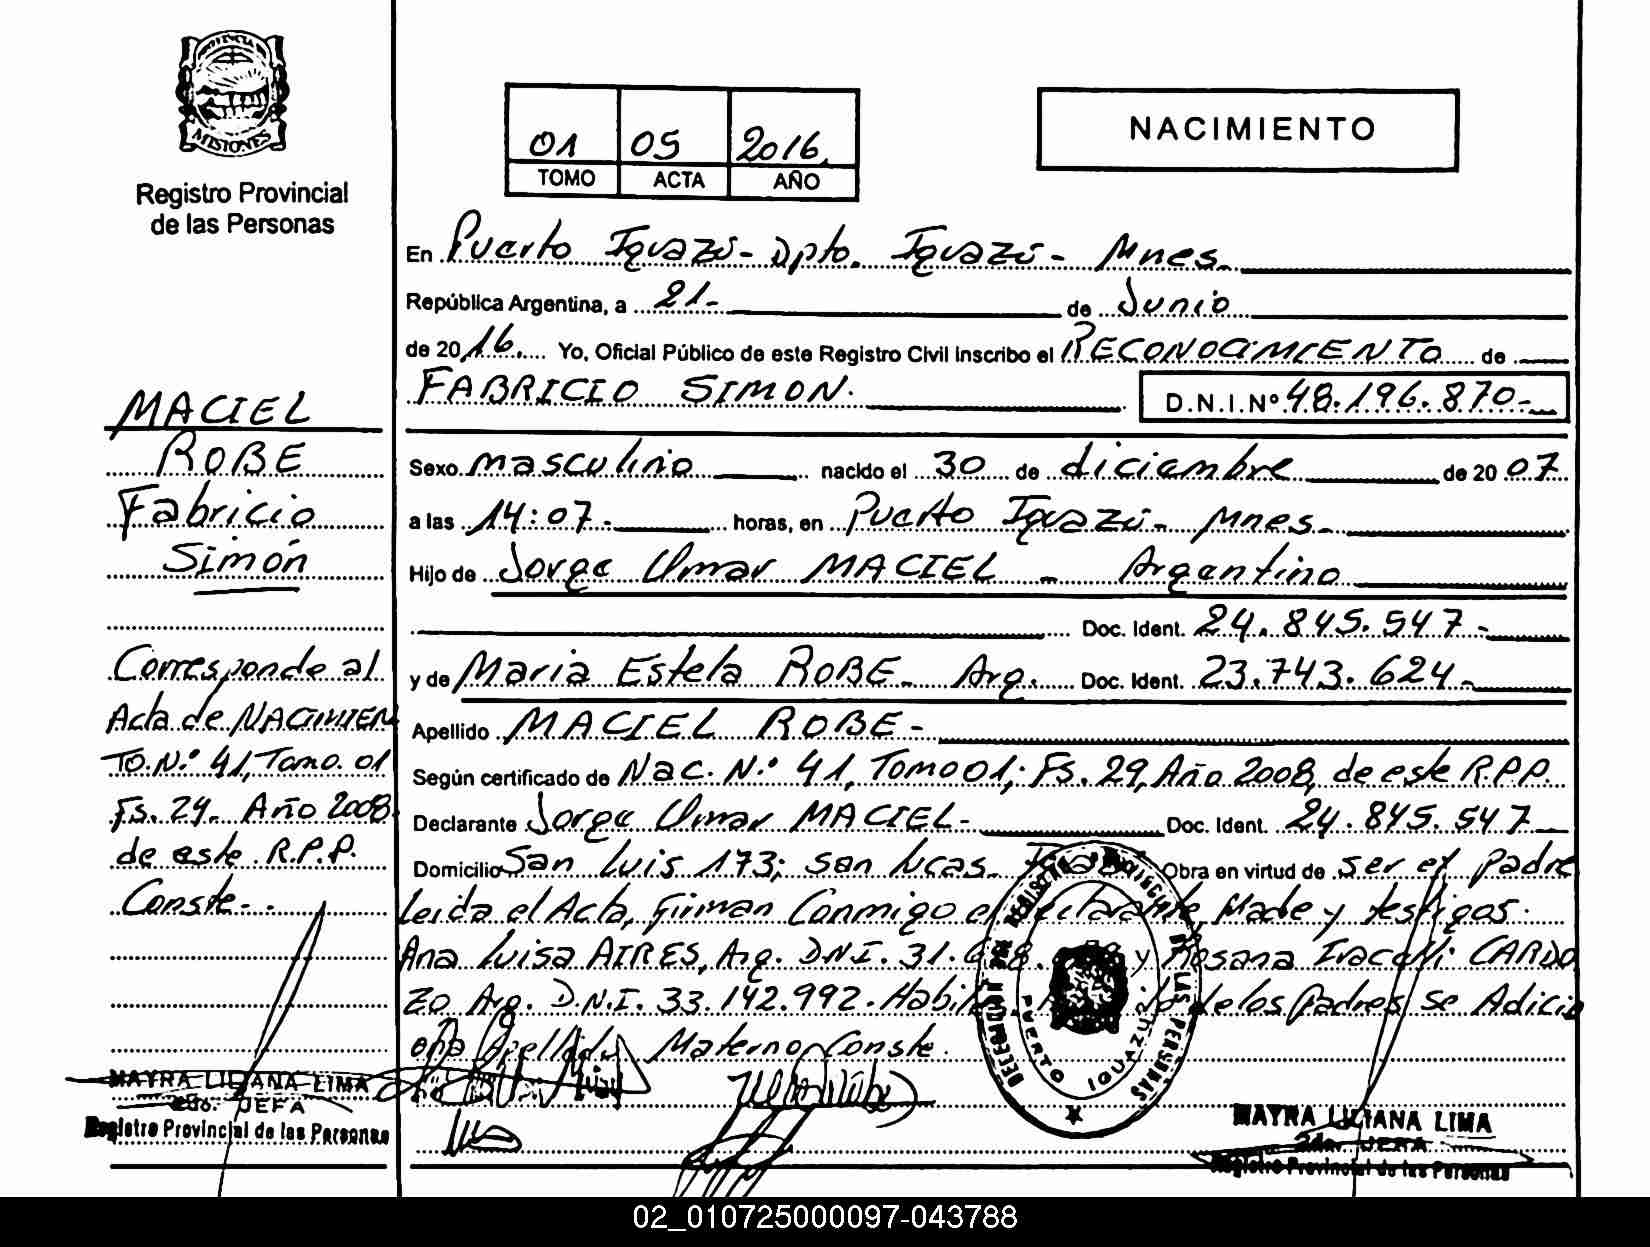 PROVINCIA DE
MISIONES
Registro Provincial
de las Personas
MACIEL
ROBE
Fabricio
Simón
Corresponde al
Acta de NACIMIEN
TO. N.º 41, Tomo. 01
Fs. 29. Año 2008
de este R.P.P.
Conste-.
MAYRA LILIANA LIMA
2do. JEFA
Registro Provincial de las Personas
01 05 2016.
TOMO ACTA AÑO
NACIMIENTO
En Puerto Iguazú - Dpto. Iguazú - Mnes.
República Argentina, a 21- de Junio
de 2016. Yo, Oficial Público de este Registro Civil Inscribo el RECONOCIMIENTO de
FABRICIO SIMON. D.N.I.Nº 48.196.870-
Sexo masculino nacido el 30 de diciembre de 2007.
a las 14:07. horas, en Puerto Iguazú - Mnes.
Hijo de Jorge Omar MACIEL - Argentino
Doc. Ident. 24.845.547-
y de Maria Estela ROBE - Arg. Doc. Ident. 23.743.624-
Apellido MACIEL ROBE-
Según certificado de Nac. N.º 41, Tomo 01; Fs. 29, Año 2008, de este R.P.P.
Declarante Jorge Omar MACIEL- Doc. Ident. 24.845.547-
Domicilio San Luis 173; San Lucas. Obra en virtud de ser el Padre
Leída el Acta, Firman Conmigo el declarante Madre y testigos.
Ana Luisa AIRES, Arg. D.N.I. 31. y Rosana Iracelli CARDO
ZO Arg. D.N.I. 33.142.992. de los Padres se Adici
ona Apellido Materno Conste.
DELEGACION DEL REGISTRO PROVINCIAL DE LAS PERSONAS
PUERTO IGUAZU
MAYRA LILIANA LIMA
2da. JEFA
Registro Provincial de las Personas
02_010725000097-043788